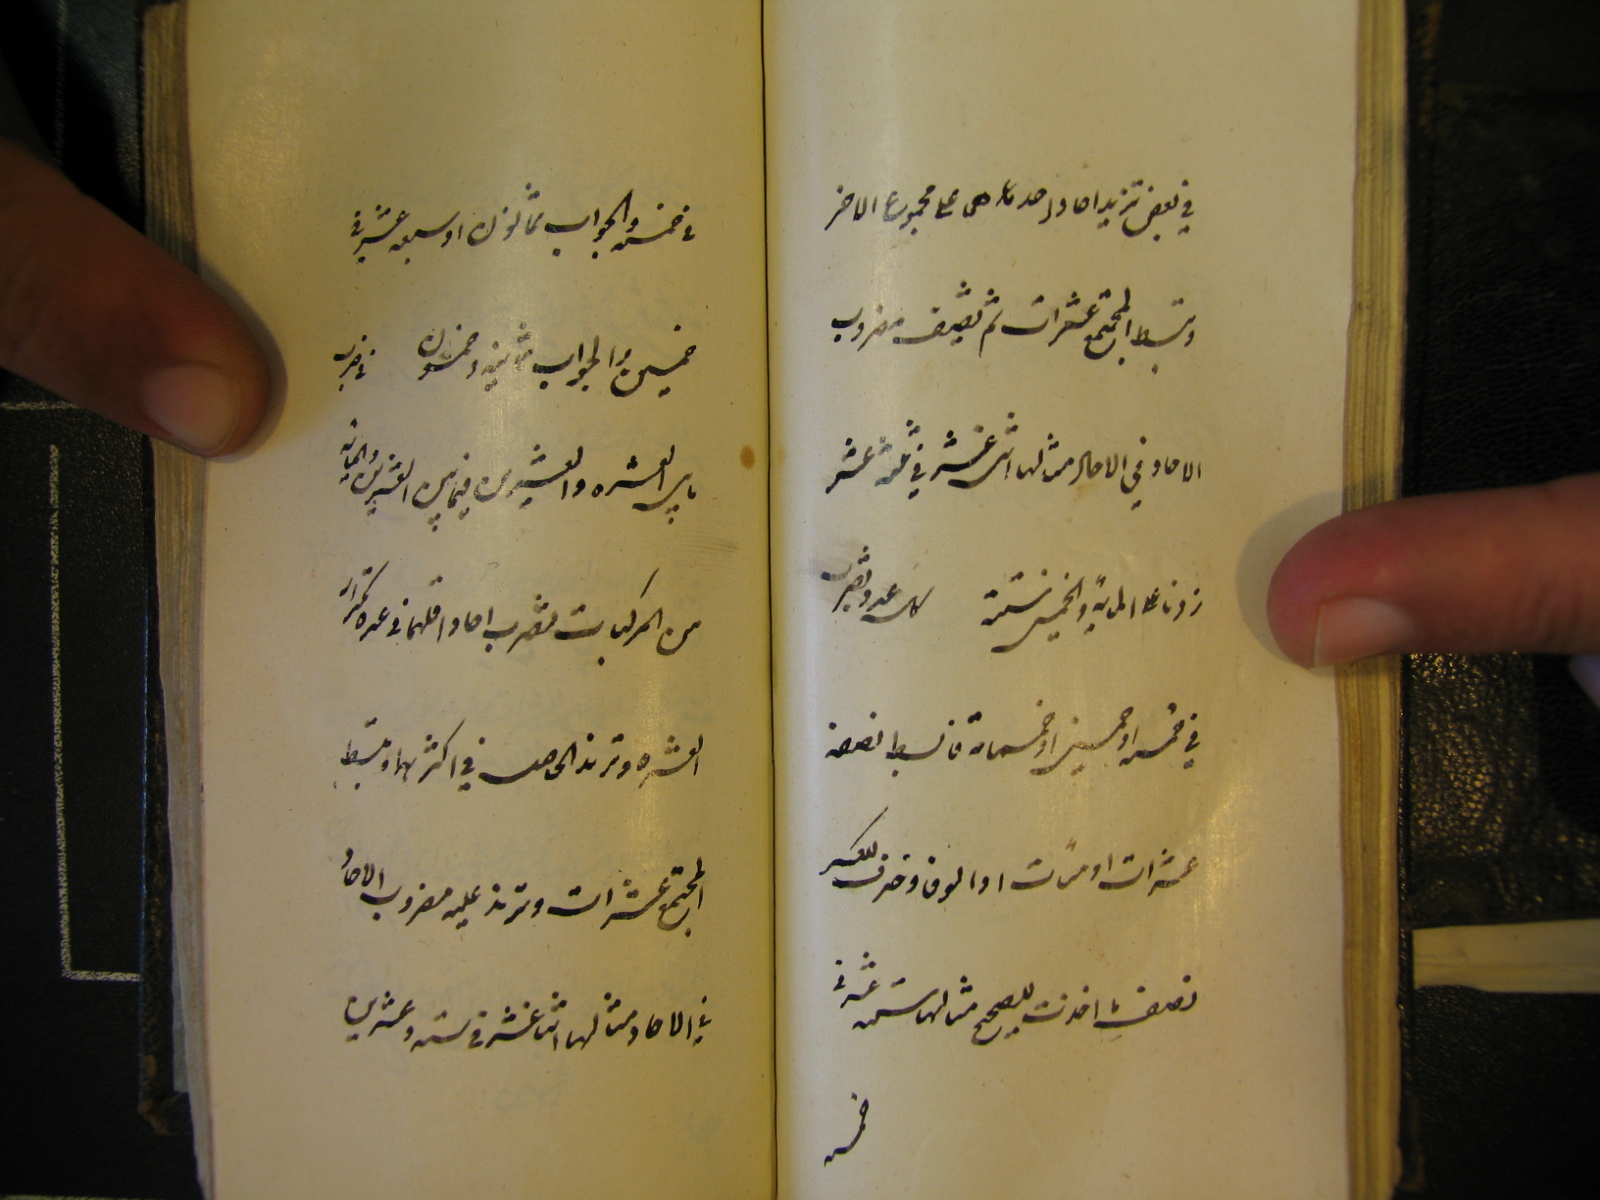 في بعض تزيد احاد احدهما على مجموع الاخر
وتبسط المجتمع عشرات ثم تضيف مضروب
الاحاد في الاحاد مثالها اثنى عشر في ثلثة عشر
زدنا على الماية والخمسين ستة كل عدد تضرب
في خمسه او خمسين او خمسمائة فابسط نصفه
عشرات او مئات او الوف وخذ للكسر
نصف ما اخذت للصحيح مثالها سته عشر في
خمسه
في خمسه والجواب ثمانون او سبعه عشر في
خمسين والجواب ثمانمائة وخمسون في ضرب
ما بين العشره والعشرين فيما بين العشرين والمائه
من المركبات تضرب احاد اقلهما في عدة تكرار
العشره وتزيد الحاصل في اكثرهما وتبسط
المجتمع عشرات وتزيد عليه مضروب الاحاد
في الاحاد مثالها اثنا عشر في سته وعشرين